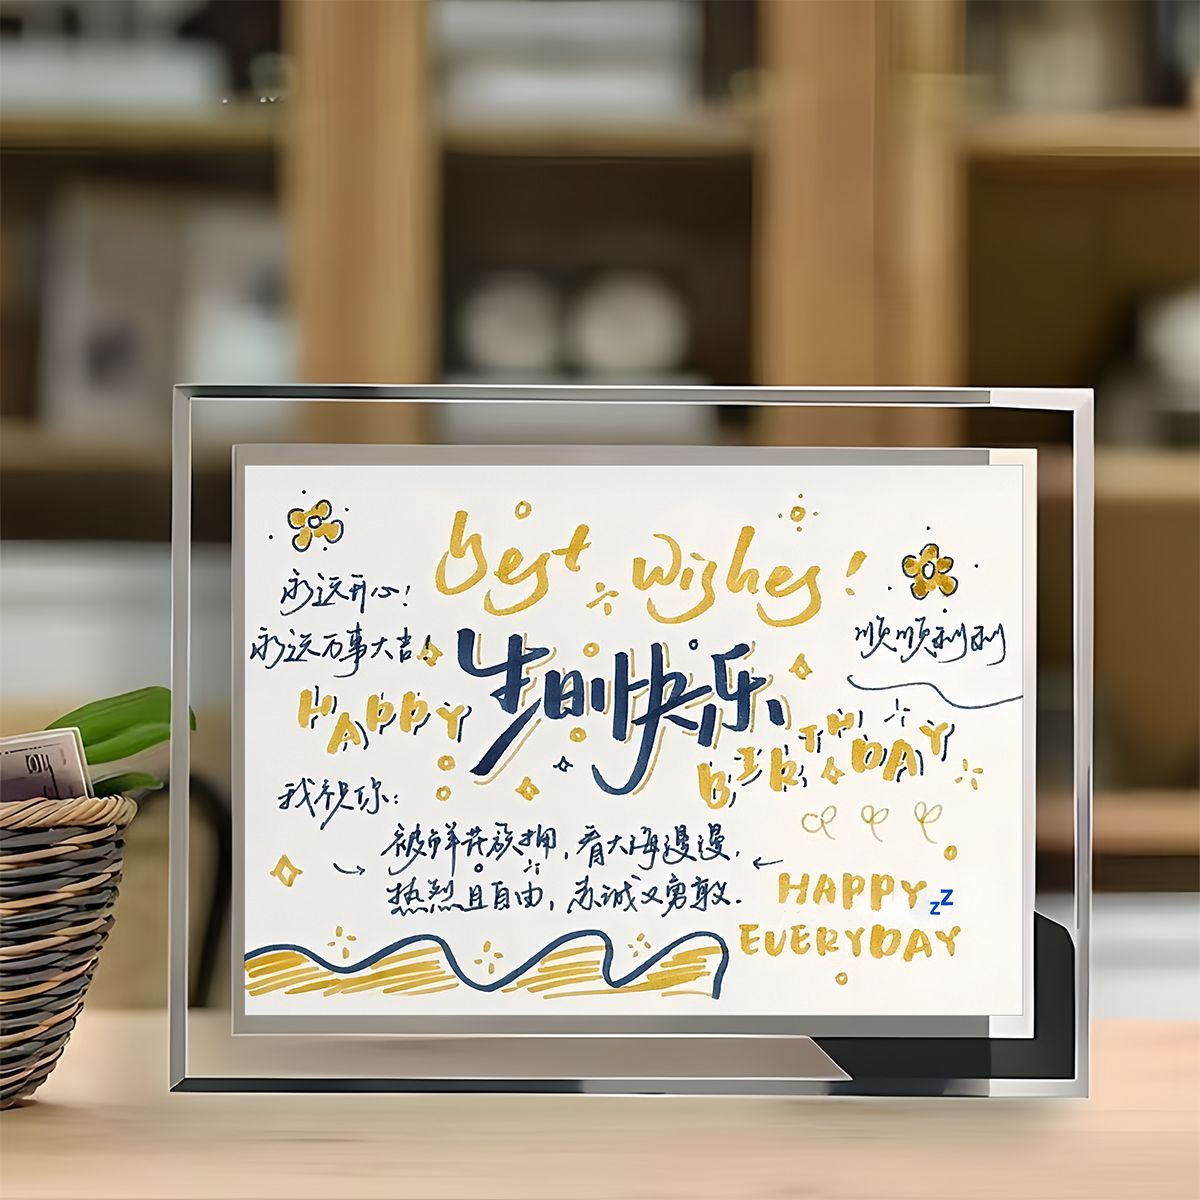 best wishes!
永远开心!
永远万事大吉!
生日快乐
顺顺利利
HAPPY
BIRTHDAY
我祝你:
被鲜花簇拥,看大海漫漫.
热烈且自由,赤诚又勇敢.
HAPPY zZ
EVERYDAY